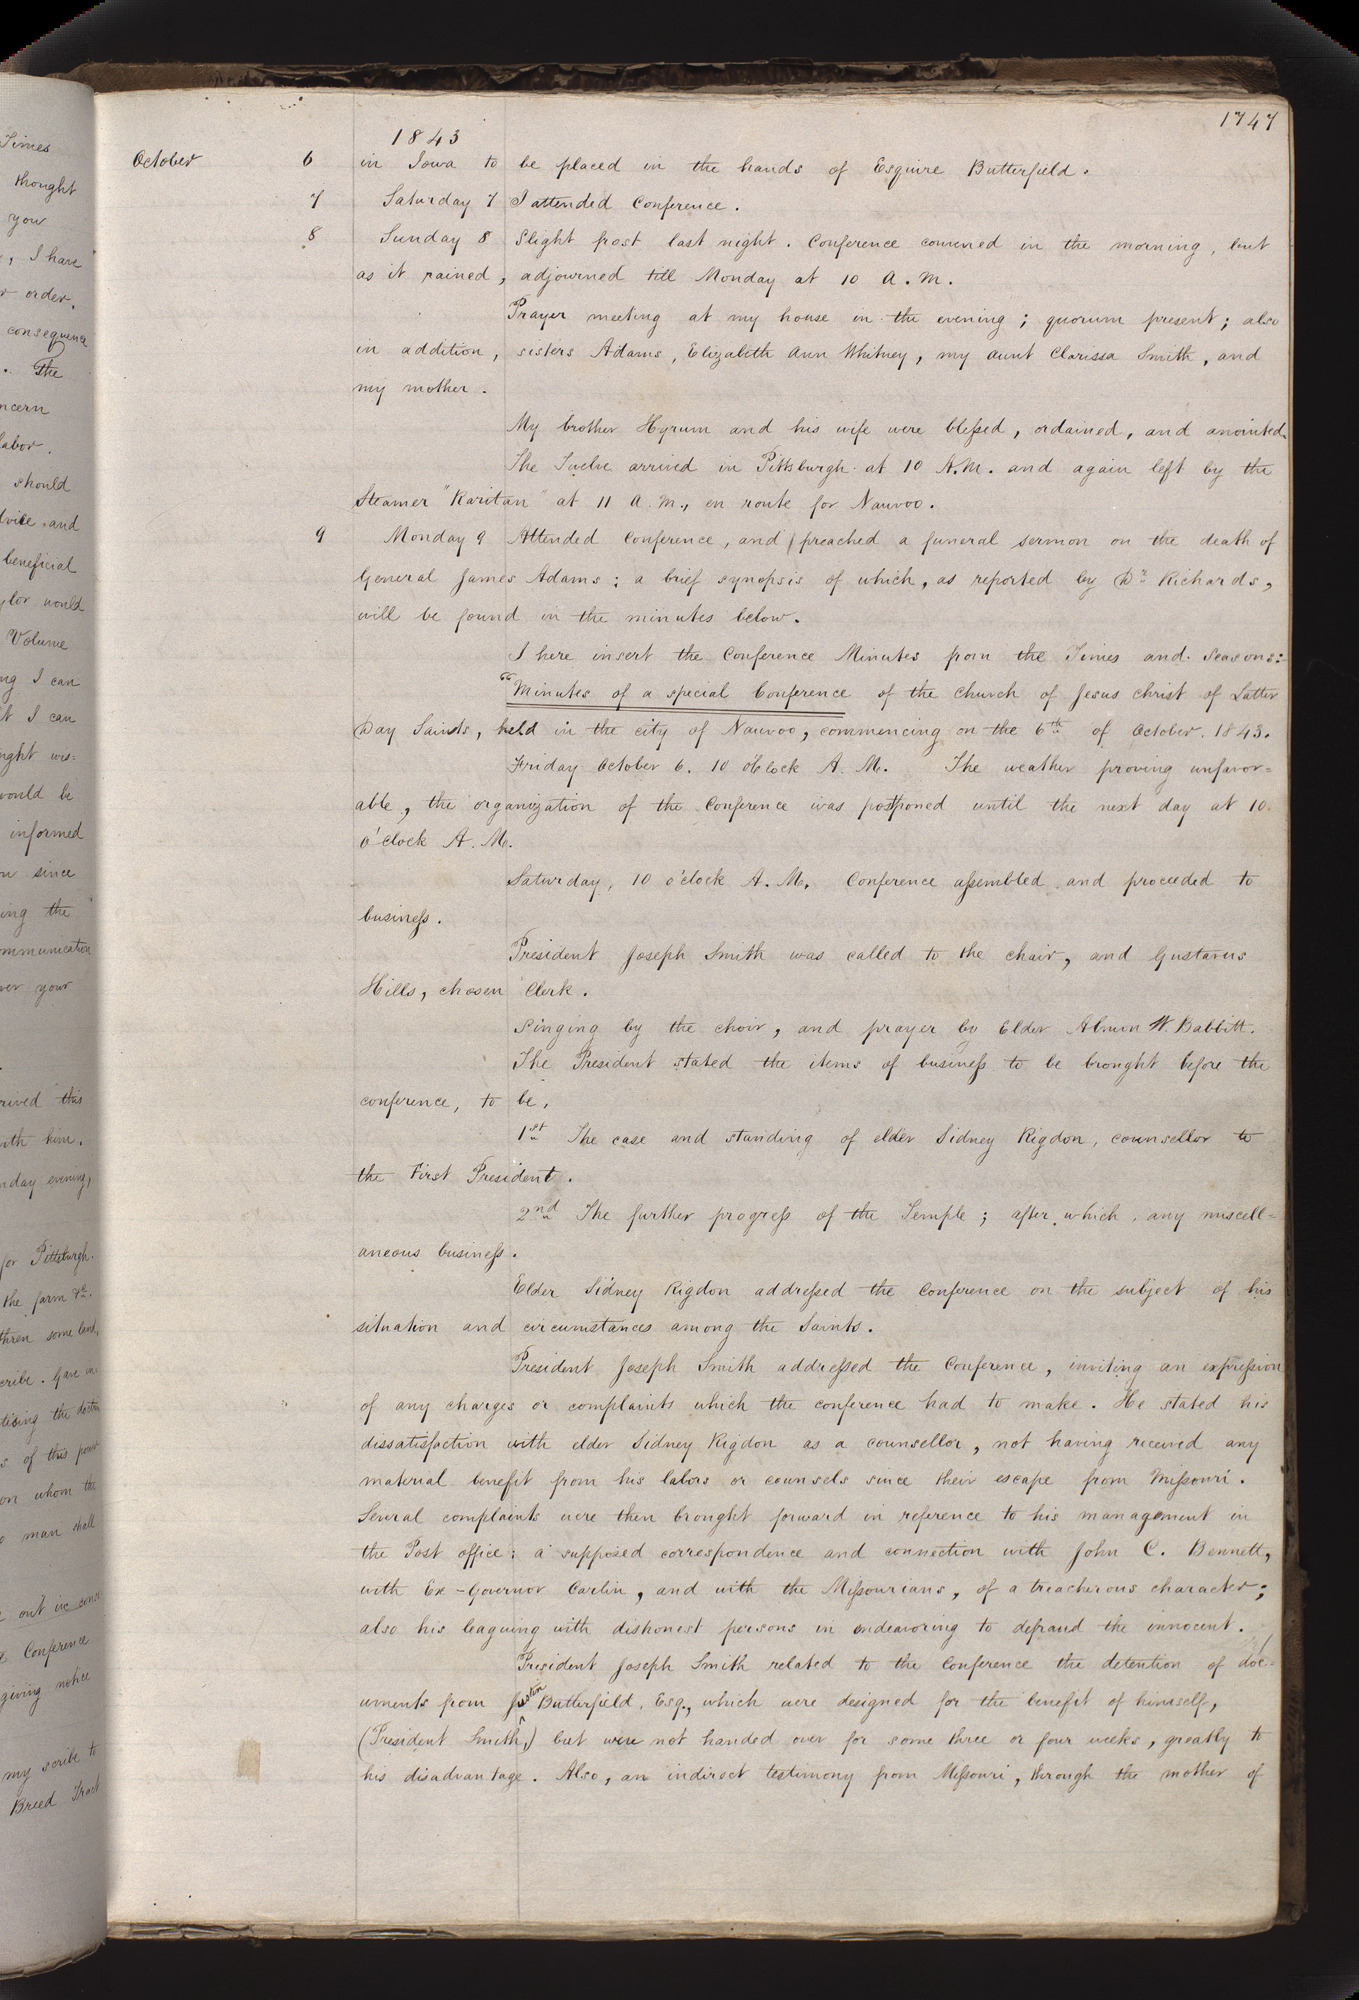 1747
1843
October 6 in Iowa to be placed in the hands of Esquire Butterfield.
7 Saturday 7 I attended Conference.
8 Sunday 8 Slight frost last night. Conference convened in the morning, but
as it rained, adjourned till Monday at 10 A.M.
Prayer meeting at my house in the evening; quorum present; also
in addition, sisters Adams, Elizabeth Ann Whitney, my aunt Clarissa Smith, and
my mother.
My brother Hyrum and his wife were blessed, ordained, and anointed.
The Twelve arrived in Pittsburgh at 10 A.M. and again left by the
Steamer "Raritan" at 11 A.M., en route for Nauvoo.
9 Monday 9 Attended Conference, and preached a funeral sermon on the death of
General James Adams; a brief synopsis of which, as reported by Dr. Richards,
will be found in the minutes below.
I here insert the Conference Minutes from the Times and Seasons:
"Minutes of a special Conference of the church of Jesus Christ of Latter
Day Saints, held in the city of Nauvoo, commencing on the 6th of October. 1843.
Friday October 6. 10 o'Clock A.M. The weather proving unfavor=
able, the organization of the Conference was postponed until the next day at 10.
o'clock A.M.
Saturday, 10 o'clock A.M. Conference assembled and proceeded to
business.
President Joseph Smith was called to the chair, and Gustavus
Hills, chosen Clerk.
Singing by the choir, and prayer by Elder Almon W. Babbitt.
The President stated the items of business to be brought before the
conference, to be,
1st The case and standing of elder Sidney Rigdon, counsellor to
the First President.
2nd The further progress of the Temple; after which, any miscell=
aneous business.
Elder Sidney Rigdon addressed the conference on the subject of his
situation and circumstances among the Saints.
President Joseph Smith addressed the Conference, inviting an expression
of any charges or complaints which the conference had to make. He stated his
dissatisfaction with elder Sidney Rigdon as a counsellor, not having received any
material benefit from his labors or counsels since their escape from Missouri.
Several complaints were then brought forward in reference to his management in
the Post office; a supposed correspondence and connection with John C. Bennett,
with Ex-Governor Carlin, and with the Missourians, of a treacherous character;
also his leaguing with dishonest persons in endeavoring to defraud the innocent.
President Joseph Smith related to the Conference the detention of doc=
uments from Justin Butterfield, Esq., which were designed for the benefit of himself,
(President Smith,) but were not handed over for some three or four weeks, greatly to
his disadvantage. Also, an indirect testimony from Missouri, through the mother of